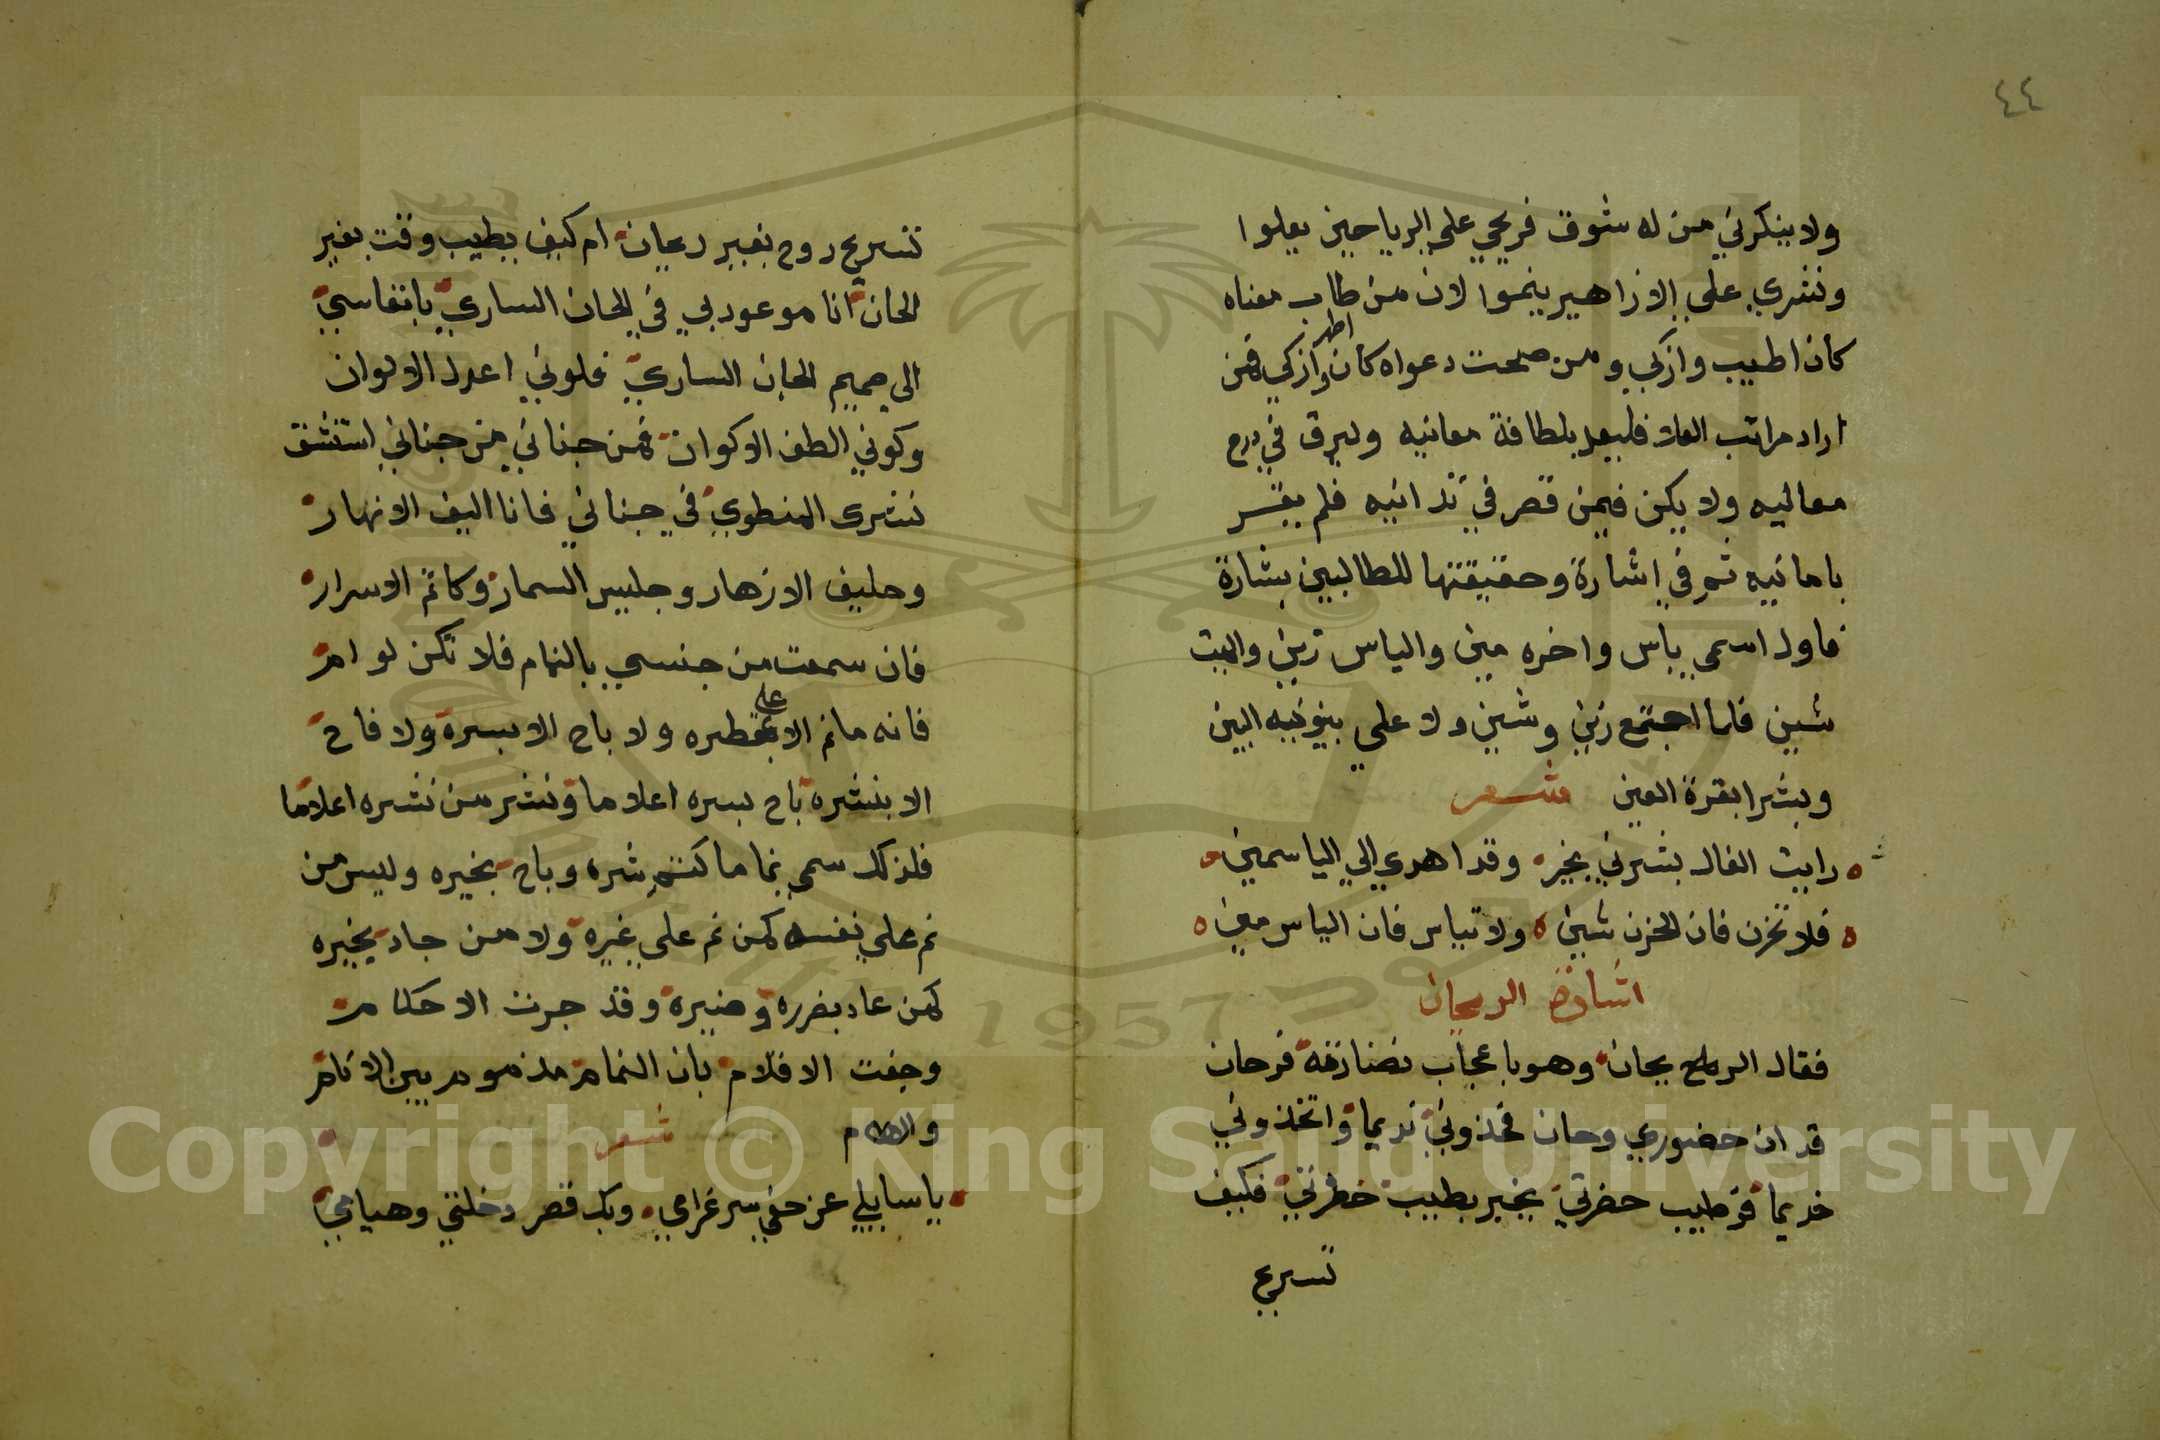 ٤٤
ولا ينكرني من له شوق فريحي علي الرياحين يعلوا
ونشري علي الازاهير ينموا لان من طاب معناه
كان اطيب وازكي ومن صحت دعواه كان اطهر وازكي فمن
اراد مراتب العلا فليعد بلطافة معانيه وليرق في درج
معاليه ولا يكن فيمن قصر في تدانيه فلم يفتر
بامانيه ثم في اشارة وحقيقتها للطالبين بشارة
فاول اسمي ياس واخره مين والياس زين والميت
شين فلما اجتمع زين وشين دلا علي بينونيه البين
وبشرا بقرة العين شعر
رايت الفال بشرني بخير وقد اهدي الي الياسمين
فلا تحزن فان الحزن شين ولا تياس فان الياس مين
اشارة الريحان
فقال الريحان وهو باعجاب نضارته فرحان
قد ان حضوري وحان فخذوني نديما واتخذوني
خديما فوطيب حضرتي بخير بطيب خضرتي فكيف
تسريح
تسريح روح بغير ريحان ام كيف يطيب وقت بغير
الحان انا موعود بي في الحان الساري بانفاسي
الي صميم الحان الساري فلوني اعدل الالوان
وكوني الطف الاكوان فمن جناني من جناني استنشق
نشري المنطوي في جناني فانا اليف الانهار
وحليف الازهار وجليس السمار وكاتم الاسرار
فان سمعت من جنسي بالنمام فلا تكن لوام
فانه مانم الا علي عطره ولا باح الا بسره ولا فاح
الا بنشره باح بسره اعلاما ونشر من نشره اعلاما
فلذلك سمي نماما كتم شره وباح بخيره وليس من
نم علي نفسه كمن نم علي غيره ولا من جاد بخيره
كمن عاد بضرره وضيره وقد جرت الاحكام
وجفت الاقلام بان النمام مذموم بين الانام
والسلام شعر
ياسايلي عن خفي سر غرامي وبك قصر دخلتي وهيامي